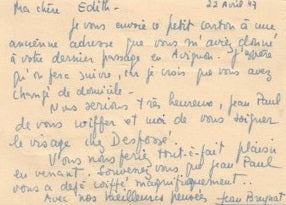 Ma chère Edith -
22 Avril 47
Je vous envoie ce petit carton à une
ancienne adresse que vous m'avez donné
à votre dernier passage en Avignon. J'espère
qu'on fera suivre, car je crois que vous avez
changé de domicile -
Nous serions très heureux, Jean Paul
de vous coiffer et moi de vous soigner
le visage chez Desfossé.
Vous nous feriez tout-à-fait plaisir
en venant. Souvenez vous que Jean Paul
vous a déjà coiffé magnifiquement..
Avec nos meilleures pensées
Jean